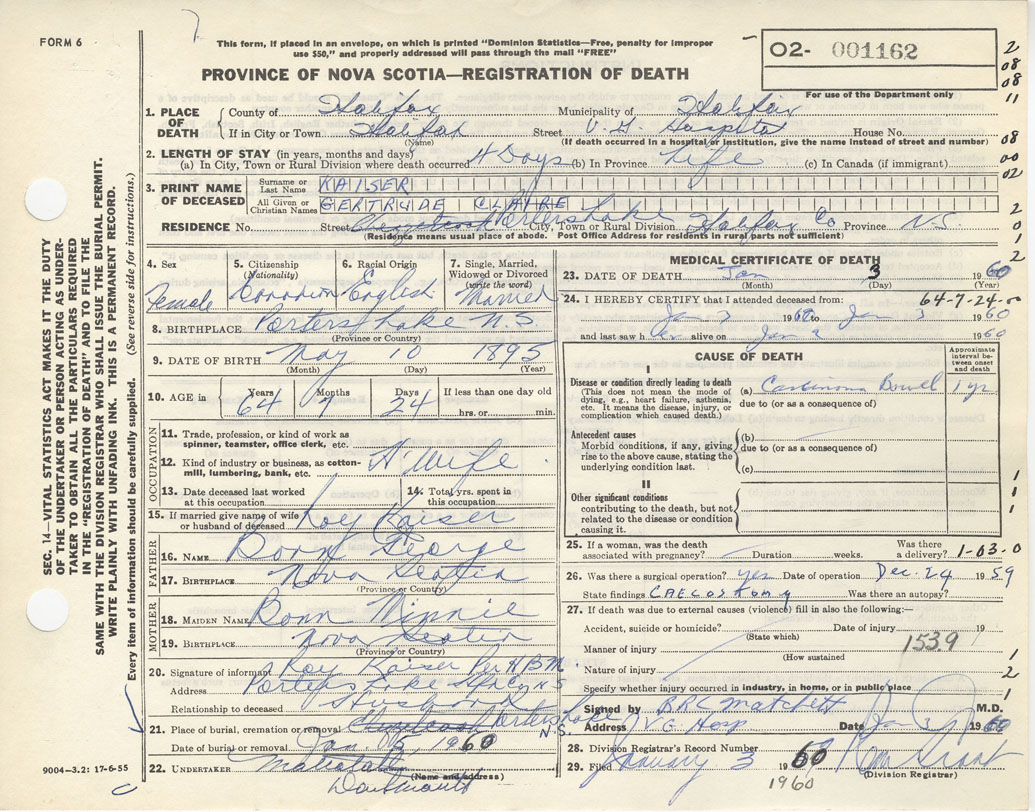 FORM 6
This form, if placed in an envelope, on which is printed "Dominion Statistics—Free, penalty for improper
use $50," and properly addressed will pass through the mail "FREE"
O2- 001162
For use of the Department only
PROVINCE OF NOVA SCOTIA—REGISTRATION OF DEATH
2
08
08
11
1. PLACE OF DEATH
County of Halifax Municipality of Halifax
If in City or Town Halifax Street V. G. Hospital House No.
(Name) (If death occurred in a hospital or institution, give the name instead of street and number)
08
2. LENGTH OF STAY (in years, months and days)
(a) In City, Town or Rural Division where death occurred 11 Days (b) In Province Life (c) In Canada (if immigrant)
00
02
3. PRINT NAME OF DECEASED
Surname or Last Name KAISER
All Given or Christian Names GERTRUDE CLAIRE
2
RESIDENCE No. Street Porters Lake City, Town or Rural Division Halifax Co Province N.S.
(Residence means usual place of abode. Post Office Address for residents in rural parts not sufficient)
0
1
2
4. Sex
Female
5. Citizenship
(Nationality)
Canadian
6. Racial Origin
English
7. Single, Married,
Widowed or Divorced
(write the word)
Married
8. BIRTHPLACE Porters Lake N.S.
(Province or Country)
9. DATE OF BIRTH May 10 1895
(Month) (Day) (Year)
10. AGE in
Years 64
Months 7
Days 24
If less than one day old
hrs. or min.
OCCUPATION
11. Trade, profession, or kind of work as
spinner, teamster, office clerk, etc.
12. Kind of industry or business, as cotton-
mill, lumbering, bank, etc.
H. Wife
13. Date deceased last worked
at this occupation
14. Total yrs. spent in
this occupation
15. If married give name of wife
or husband of deceased Roy Kaiser
FATHER
16. NAME Bonn George
17. BIRTHPLACE Nova Scotia
(Province or Country)
MOTHER
18. MAIDEN NAME Bonn Minnie
19. BIRTHPLACE Nova Scotia
(Province or Country)
20. Signature of informant Roy Kaiser Per H.B.M.
Address Porters Lake Hfx Co N S
Relationship to deceased Husband
21. Place of burial, cremation or removal Porters Lake
N.S.
Date of burial or removal Jan. 1960
22. UNDERTAKER
(Name and address)
Dartmouth
MEDICAL CERTIFICATE OF DEATH
23. DATE OF DEATH Jan 3 1960
(Month) (Day) (Year)
24. I HEREBY CERTIFY that I attended deceased from: 64-7-24-00
Jan 3 1960 to Jan 3 1960
and last saw her alive on Jan 1960
CAUSE OF DEATH
Approximate
interval be-
tween onset
and death
I
Disease or condition directly leading to death
(This does not mean the mode of
dying, e.g., heart failure, asthenia,
etc. It means the disease, injury, or
complication which caused death.)
(a) Carcinoma Bowel 1 yr
due to (or as a consequence of)
Antecedent causes
Morbid conditions, if any, giving
rise to the above cause, stating the
underlying condition last.
(b)
due to (or as a consequence of)
(c)
II
Other significant conditions
contributing to the death, but not
related to the disease or condition
causing it.
1
1
1
25. If a woman, was the death
associated with pregnancy? Duration weeks. Was there
a delivery? 1-03-0
26. Was there a surgical operation? yes Date of operation Dec. 24 1959
State findings CAECOSTOMY Was there an autopsy?
27. If death was due to external causes (violence) fill in also the following:—
Accident, suicide or homicide? Date of injury 19
(State which)
153.9
Manner of injury
(How sustained
Nature of injury
Specify whether injury occurred in industry, in home, or in public place
1
2
1
Signed by B.R.C. Matchett M.D.
Address V. G. Hosp Date Jan 3 1960
2
28. Division Registrar's Record Number
29. Filed January 3 1960
(Division Registrar)
1960
SEC. 14—VITAL STATISTICS ACT MAKES IT THE DUTY
OF THE UNDERTAKER OR PERSON ACTING AS UNDER-
TAKER TO OBTAIN ALL THE PARTICULARS REQUIRED
IN THE "REGISTRATION OF DEATH" AND TO FILE THE
SAME WITH THE DIVISION REGISTRAR WHO SHALL ISSUE THE BURIAL PERMIT.
WRITE PLAINLY WITH UNFADING INK. THIS IS A PERMANENT RECORD.
Every item of information should be carefully supplied. (See reverse side for instructions.)
9004—3.2: 17-6-55